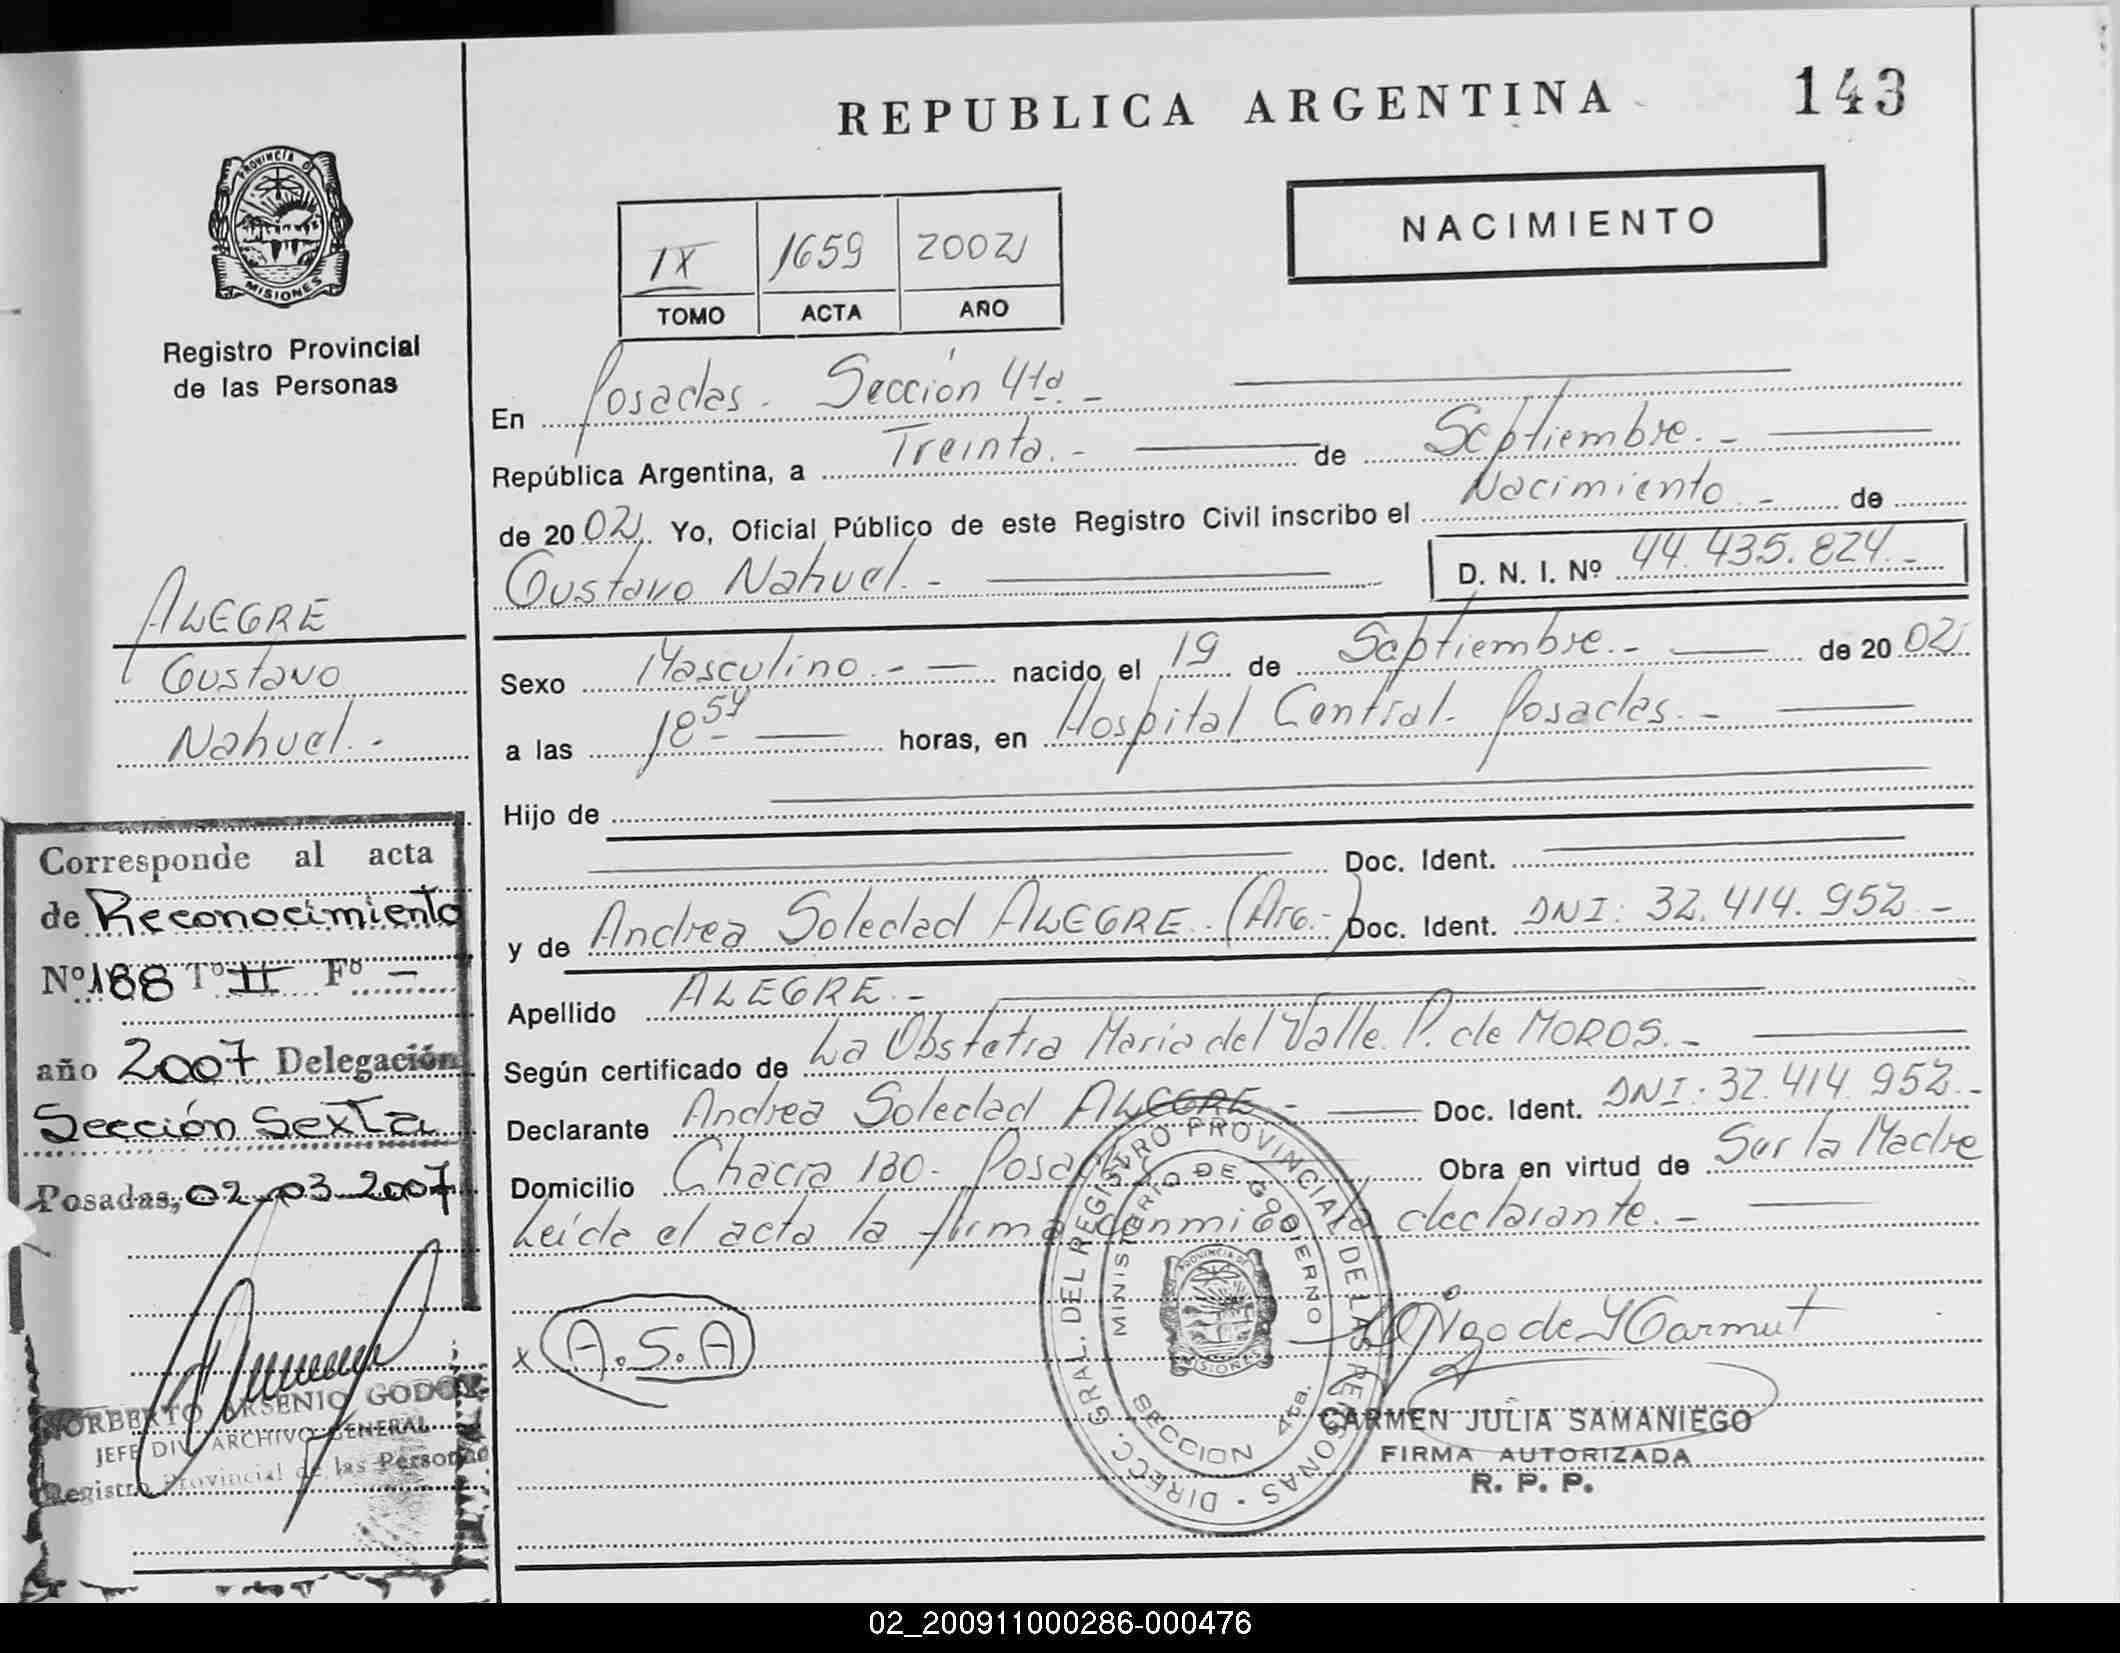 REPUBLICA ARGENTINA
143
PROVINCIA DE
MISIONES
Registro Provincial
de las Personas
NACIMIENTO
IX 1659 2002
TOMO ACTA AÑO
En Posadas. Sección 4ta. -
República Argentina, a Treinta. - de Septiembre. -
de 2002 Yo, Oficial Público de este Registro Civil inscribo el Nacimiento. - de
Gustavo Nahuel. - D. N. I. Nº 44.435.824. -
Sexo Masculino. - nacido el 19 de Septiembre. - de 2002
a las 18 54 horas, en Hospital Central. Posadas. -
Hijo de
Doc. Ident.
y de Andrea Soledad ALEGRE. (Arg.-) Doc. Ident. DNI: 32.414.952. -
Apellido ALEGRE. -
Según certificado de La Obstetra Maria del Valle P. de MOROS. -
Declarante Andrea Soledad ALEGRE - Doc. Ident. DNI: 32.414.952. -
Domicilio Chacra 130. Posadas Obra en virtud de Ser la Madre
Leída el acta la firma conmigo la declarante. -
x A.S.A
DIRECC. GRAL. DEL REGISTRO PROVINCIAL DE LAS PERSONAS -
MINISTERIO DE GOBIERNO
PROVINCIA DE
MISIONES
SECCION 4ta.
CARMEN JULIA SAMANIEGO
FIRMA AUTORIZADA
R. P. P.
ALEGRE
Gustavo
Nahuel. -
Corresponde al acta
de Reconocimiento
Nº 188 Tº II Fº -
año 2007 Delegación
Sección Sexta
Posadas, 02-03-2007
NORBERTO ARSENIO GODOY
JEFE DIV. ARCHIVO GENERAL
Registro Provincial de las Personas
02_200911000286-000476